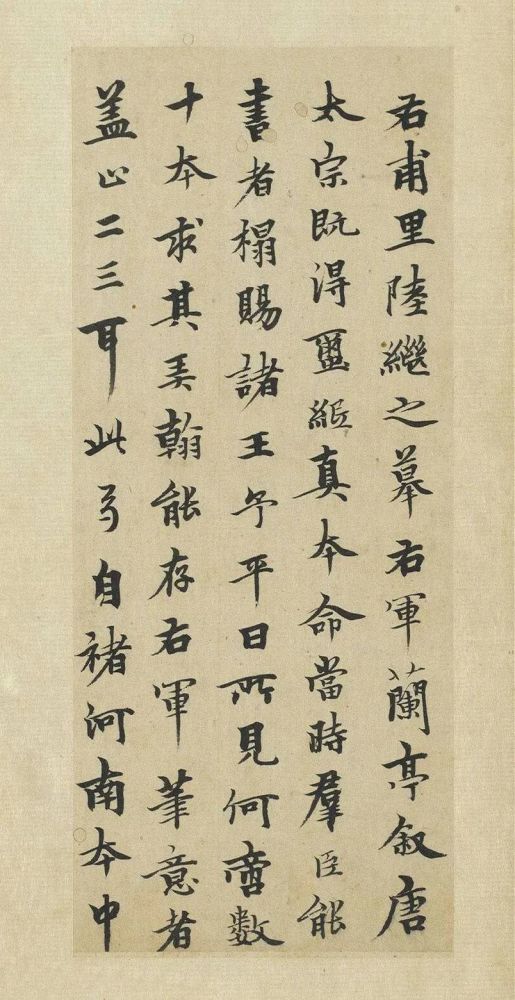 右甫里陸繼之摹右軍蘭亭叙唐
太宗既得璽綖真本命當時羣臣能
書者榻賜諸王予平日所見何啻數
十本求其弄翰能存右軍筆意者
盖止二三耳此ち自褚河南本中